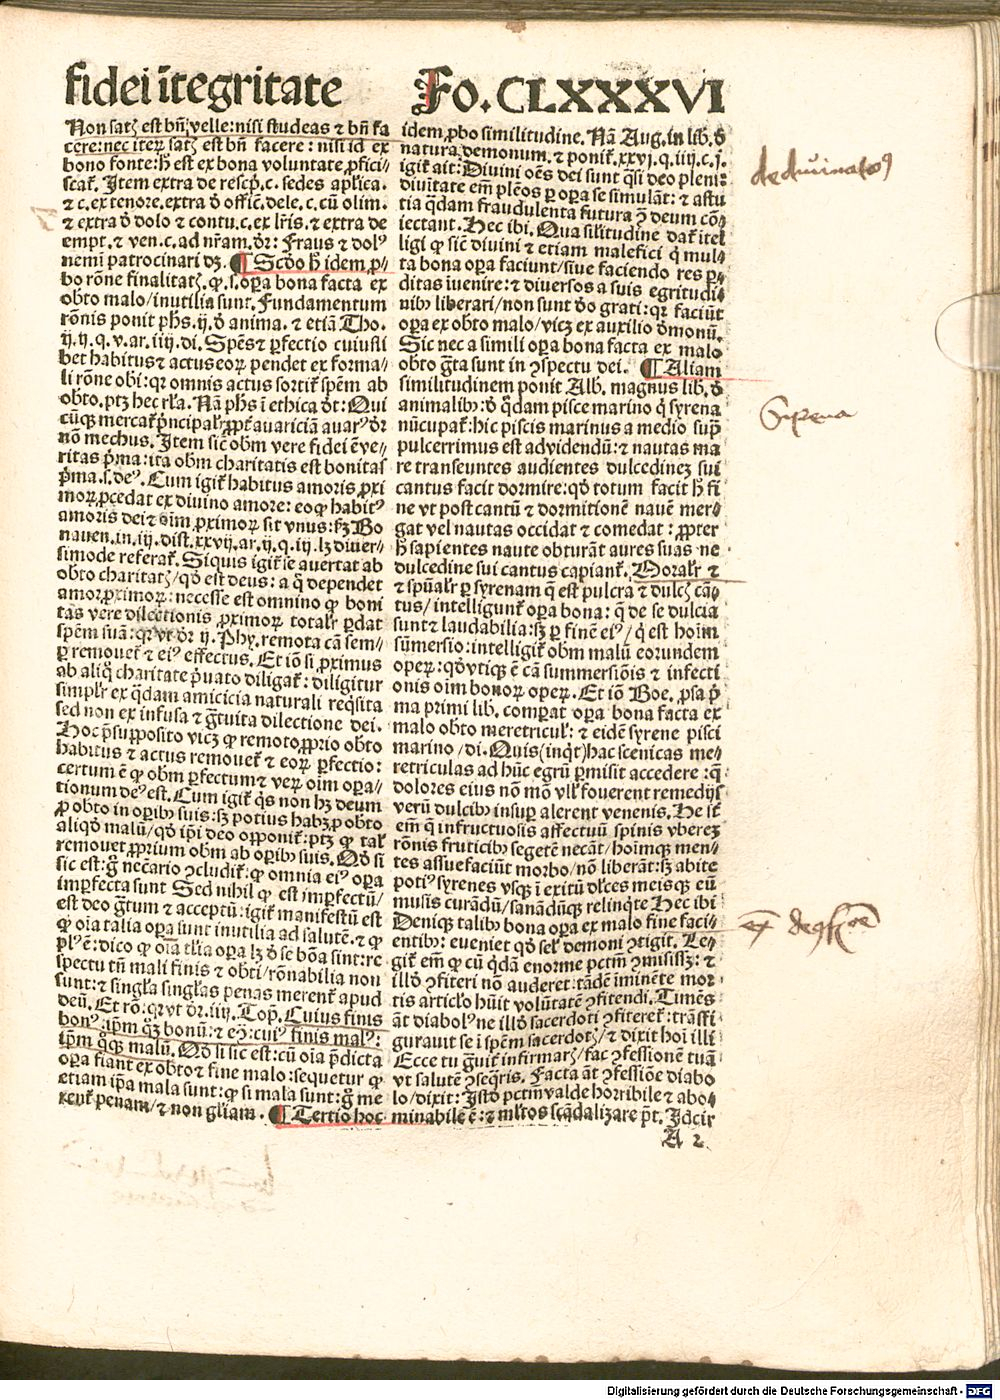 fidei ītegritate
Fo. CLXXXVI
Non satꝫ est bn̄ velle: nisi studeas ⁊ bn̄ fa
cere: nec iterꝫ satꝫ est bn̄ facere: nisi id ex
bono fonte: h̄ est ex bona voluntate ꝓfici⸗
scat̄. Item extra de rescp̄. c. sedes apl̓ica.
⁊ c. ex tenore. extra ð offic̄. dele. c. cū olim.
⁊ extra ð dolo ⁊ contu. c. ex lr̄is. ⁊ extra de
empt. ⁊ ven. c. ad nr̄am. ðr: Fraus ⁊ dolꝰ
nemī patrocinari dꝫ. ¶ Scðo h̄ idem ꝓ⸗
bo rōne finalitatꝫ. ꝙ .s. oꝑa bona facta ex
obto malo/ inutilia sunt. Fundamentum
rōnis ponit phs. ij. ð anima. ⁊ etiā Tho.
ij. ij. q. v. ar. iiij. di. Spēs ⁊ ꝑfectio cuiusli
bet habitus ⁊ actus eoꝝ pendet ex forma⸗
li rōne obi: qꝛ omnis actus sortit̄ spēm ab
obto. ptꝫ hec rl̓a. Nā phs ī ethica ðt: Qui
cūqꝫ mercat̄ pͥncipalr̄ ꝓpt̄ auariciā auarꝰ ðr
nō mechus. Item sic̄ obm vere fidei ē ve⸗
ritas pͥma: ita obm charitatis est bonitas
pͥma .s. deꝰ. Cum igit̄ habitus amoris ꝓxi
moꝝ ꝓcedat ex diuino amore: eoqꝫ habitꝰ
amoris dei ⁊ oīm ꝓximoꝝ sit vnus: sꝫ Bo
nauen. in. iij. dist. xxvij. ar. ij. q. iij. lꝫ diuer⸗
simode referat̄. Siquis igit̄ se auertat ab
obto charitatꝫ/ qð est deus: a q̊ dependet
amor ꝓximoꝝ: necesse est omnino ꝙ boni
tas vere dilectionis ꝓximoꝝ totalr̄ ꝑdat
spēm suā: qꝛ vt ðr ij. Phy. remota cā sem⸗
ꝑ remouet̄ ⁊ eiꝰ effectus. Et iō si ꝓximus
ab aliq̊ charitate pͥuato diligat̄: diligitur
simplr̄ ex q̄dam amicicia naturali req̄sita
sed non ex infusa ⁊ gͣtuita dilectione dei.
Hoc p̄supposito vicꝫ ꝙ remoto ꝓprio obto
habitus ⁊ actus remouet̄ ⁊ eoꝝ ꝑfectio:
certum ē ꝙ obm ꝑfectum ⁊ verꝫ oīm oꝑa⸗
tionum deꝰ est. Cum igit̄ q̄s non hꝫ deum
ꝓ obto in oꝑibꝫ suis: sꝫ potius habꝫ ꝓ obto
aliqð malū/ qð ip̄i deo opponit̄: ptꝫ ꝙ tal̓
remouet ꝓprium obm ab oꝑibꝫ suis. Qð si
sic est: gͦ necͣario ꝯcludit̄ ꝙ omnia eiꝰ oꝑa
imꝑfecta sunt Sed nihil ꝙ est imꝑfectū/
est deo gͣtum ⁊ acceptū: igit̄ manifestū est
ꝙ oīa talia oꝑa sunt inutilia ad salutē. ⁊ ꝙ
plꝰ ē: dico ꝙ oīa tl̓ia oꝑa lꝫ ð se bōa sint: re
spectu tn̄ mali finis ⁊ obti/ rōnabilia non
sunt: ⁊ singl̓a singl̓as penas merent̄ apud
deū. Et rō: qꝛ vt ðr. iiij. Top̄. Cuius finis
bonꝰ. ip̄m q̊qꝫ bonū: ⁊ eꝯ: cuiꝰ finis malꝰ:
ip̄m q̊qꝫ malū. Qð si sic est: cū oīa p̄dicta
oꝑa fiant ex obto ⁊ fine malo: sequetur ꝙ
etiam ip̄a mala sunt: ꝙ si mala sunt: gͦ me
rent̄ penam/ ⁊ non gl̓iam. ¶ Tertio hoc
idem ꝓbo similitudine. Nā Aug. in lib. ð
natura demonum. ⁊ ponit̄. xxvj. q. iiij. c. j.
igit̄ ait: Diuini oēs dei sunt q̄si deo pleni:
diuitate em̄ plēos ꝑ oꝑa se simulāt: ⁊ astu
tia q̄dam fraudulenta futura ꝙ deum cō⸗
iectant. Hec ibi. Qua silitudine dat̄ itel
ligi ꝙ sic̄ diuini ⁊ etiam malefici q̄ mul⸗
ta bona oꝑa faciunt/ siue faciendo res ꝑ⸗
ditas iuenire: ⁊ diuersos a suis egritudi⸗
nibꝫ liberari/ non sunt ðo grati: qꝛ faciūt
oꝑa ex obto malo/ vicꝫ ex auxilio ðmonū.
Sic nec a simili oꝑa bona facta ex malo
obto gͣta sunt in ꝯspectu dei. ¶ Aliam
similitudinem ponit Alb. magnus lib. ð
animalibꝫ: ð q̄dam pisce marino q̄ syrena
nūcupat̄: hic piscis marinus a medio supͣ
pulcerrimus est ad videndū: ⁊ nautas ma
re transeuntes audientes dulcedinez sui
cantus facit dormire: qð totum facit h̄ fi
ne vt post cantū ⁊ dormitionē nauē mer⸗
gat vel nautas occidat ⁊ comedat: ꝓpter
h̄ sapientes naute obturāt aures suas ne
dulcedine sui cantus capiant̄. Moralr̄ ⁊
⁊ spūalr̄ ꝑ syrenam q̄ est pulcra ⁊ dulcꝫ cā⸗
tus/ intelligunt̄ oꝑa bona: q̄ de se dulcia
sunt ⁊ laudabilia: sꝫ ꝑ finē eiꝰ/ q̄ est hoīm
sūmersio: intelligit̄ obm malū eorundem
operꝫ: qð vtiqꝫ ē cā summersiōis ⁊ infecti
onis oīm bonoꝝ operꝫ. Et iō Boe. ꝓsa pͥ
ma primi lib. comꝑat oꝑa bona facta ex
malo obto meretricul̓: ⁊ eidē syrene pisci
marino/ di. Quis (inq̄t) has scenicas me⸗
retriculas ad hūc egrū ꝑmisit accedere: q̄
dolores eius nō mō vll̓ fouerent remedijs
verū dulcibꝫ insuꝑ alerent venenis. He st̄
em̄ q̄ infructuosis affectuū spinis vberez
rōnis fruticibꝫ segetē necāt/ hoīmqꝫ men⸗
tes assuefaciūt morbo/ nō liberāt: sꝫ abite
potiꝰ syrenes vsqꝫ ī exitū dl̓ces meisqꝫ eū
musis curādū/ sanādūqꝫ relinq̄te Hec ibi
Deniqꝫ talibꝫ bona oꝑa ex malo fine faci⸗
entibꝫ: eueniet qð sel̓ demoni ꝯtigit. Le⸗
git̄ em̄ ꝙ cū q̄dā enorme pctm̄ ꝯmisissꝫ: ⁊
illð ꝯfiteri nō auderet: tādē iminēte mor⸗
tis articl̓o hūit volūtatē ꝯfitendi. Timēs
āt diabolꝰ ne illð sacerdoti ꝯfiteret̄: trāsfi
gurauit se ī spēm sacerdotꝫ/ ⁊ dixit hoī illi
Ecce tu gͣuit̄ infirmarꝫ/ fac ꝯfessionē tuā
vt salutē ꝯseq̄ris. Facta āt ꝯfessiōe diabo
lo/ dixit: Istð pctm̄ valde horribile ⁊ abo⸗
minabile ē: ⁊ ml̓tos scādalizare p̄t. Idcir
A 2
de diuinatoꝝ
Syrena
Digitalisierung gefördert durch die Deutsche Forschungsgemeinschaft - DFG